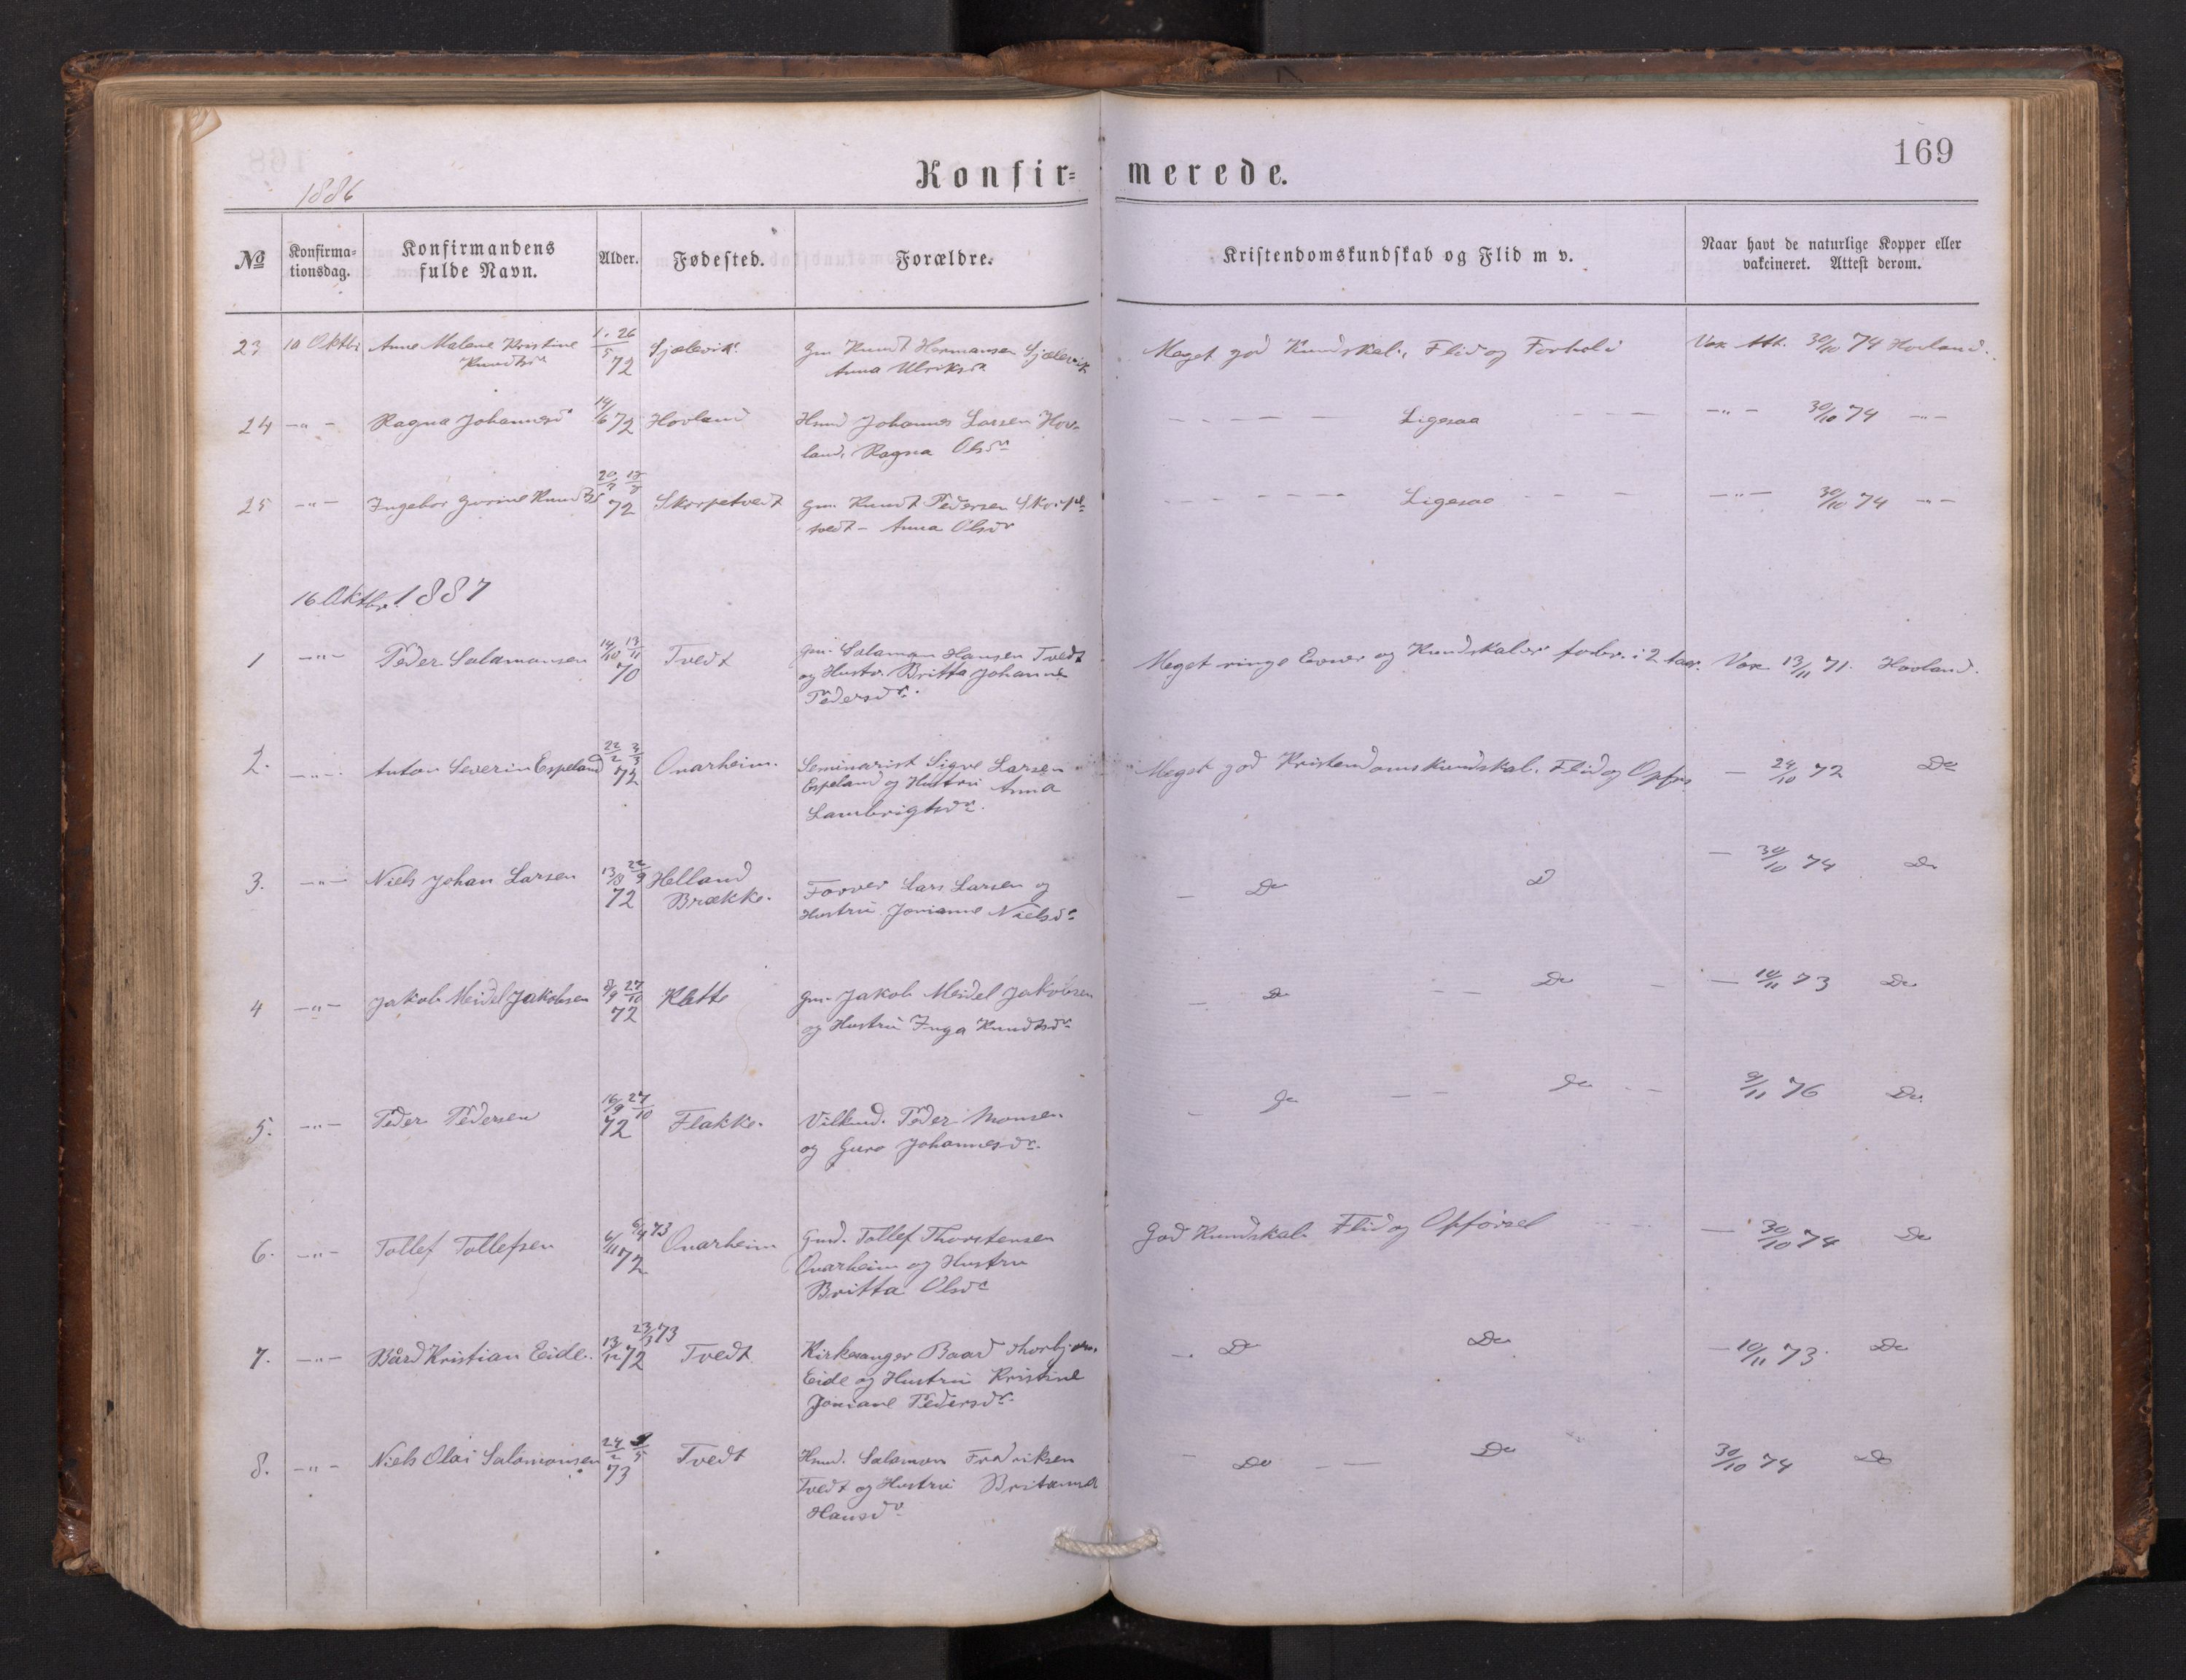 169
Konfir= merede.
1886
No Konfirma= tionsdag. Konfirmandens fulde Navn. Alder. Fødested. Forældre. Kristendomskundskab og Flid m v. Naar havt de naturlige Kopper eller vakcineret. Attest derom.
23 10 Oktbr Anne Malene Kristine 1/5 26 Sjælevik Gm Knudt Hermansen Sjælevik Meget god Kundskab, Flid og Forhold Vax Att. 30/10 74 Hovland.
Knudtsdr 72 Anna Ulriksdr
24 -"- Ragna Johannesdr 14/6 72 Hovland Hmd Johannes Larsen Hov- Ligesaa -"- 30/10 74 -"-
land, Ragna Olsdr
25 -"- Ingebor Gurine Knudtsdr 72 Skorpetvedt Gm. Knudt Pedersen Skorpe- Ligesaa -"- 30/10 74 -"-
tvedt - Anna Olsdr
16 Oktbr. 1887
1 -"- Peder Salamonsen 14/10 13/11 Tvedt Gm. Salamon Hansen Tvedt Meget ringe Evner og Kundskaber forber. i 2 Aar. Vax 13/11 71. Hovland.
70 og Hustr. Britta Johanne
Pedersdr.
2. -"- Anton Severin Espeland 22/2 3/3 Onarheim. Seminarist Sigve Larsen Meget god Kristendomskundskab. Flid og Opførs. - 24/10 72 Do
72 Espeland og Hustru Anna
Lambrigtsdr.
3. -"- Niels Johan Larsen 13/8 22/9 Helland Farver Lars Larsen og - Do D - 30/10 74 Do
72 Brække. Hustru Jonianne Nielsdr
4 -"- Jakob Meidel Jakobsen 8/9 27/10 Klette Gm. Jakob Meidel Jakobsen - Do - - Do - - 10/11 73 Do
72 og Hustru Inga Knudtsdr
5. -"- Peder Pedersen 16/9 27/10 Flakke. Vilkmd. Peder Monsen - Do - - Do - - 9/11 76 Do
72 og Guro Johannesdr.
6. -"- Tollef Tollefsen 6/11 72 6/4 73 Onarheim Gmd. Tollef Thorstensen God Kundskab Flid og Opførsel - 30/10 74 Do
Onarheim og Hustru
Britta Olsdr
7. -"- Bård Kristian Eide. 13/12 72 23/3 73 Tvedt Kirkesanger Baard Thorbjørns. - Do Do - 10/11 73. Do
Eide og Hustru Kristine
Joniane Pedersdr.
8. -"- Niels Olai Salamonsen 24/2 Tvedt Hmd. Salamon Fredriksen - Do - - Do 30/10 74 Do
73 Tvedt og Hustru Britanna
Hansdr